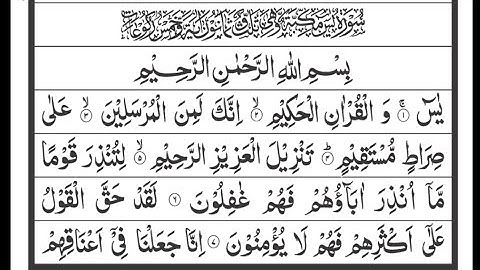 سُوْرَةُ يٰسٓ مَكِّيَّةٌ وَّهِيَ ثَلٰثٌ وَّثَمَانُوْنَ اٰيَةً وَّخَمْسُ رُكُوْعَاتٍ
بِسْمِ اللّٰهِ الرَّحْمٰنِ الرَّحِيْمِ
يٰسٓ ۚ‏﴿۱﴾ وَ الْقُرْاٰنِ الْحَكِيْمِ ۙ‏﴿۲﴾ اِنَّكَ لَمِنَ الْمُرْسَلِيْنَ ۙ‏﴿۳﴾ عَلٰى
صِرَاطٍ مُّسْتَقِيْمٍ ؕ‏﴿۴﴾ تَنْزِيْلَ الْعَزِيْزِ الرَّحِيْمِ ۙ‏﴿۵﴾ لِتُنْذِرَ قَوْمًا
مَّاۤ اُنْذِرَ اٰبَآؤُهُمْ فَهُمْ غٰفِلُوْنَ ‏﴿۶﴾ لَقَدْ حَقَّ الْقَوْلُ
عَلٰۤى اَكْثَرِهِمْ فَهُمْ لَا يُؤْمِنُوْنَ ‏﴿۷﴾ اِنَّا جَعَلْنَا فِيْۤ اَعْنَاقِهِمْ